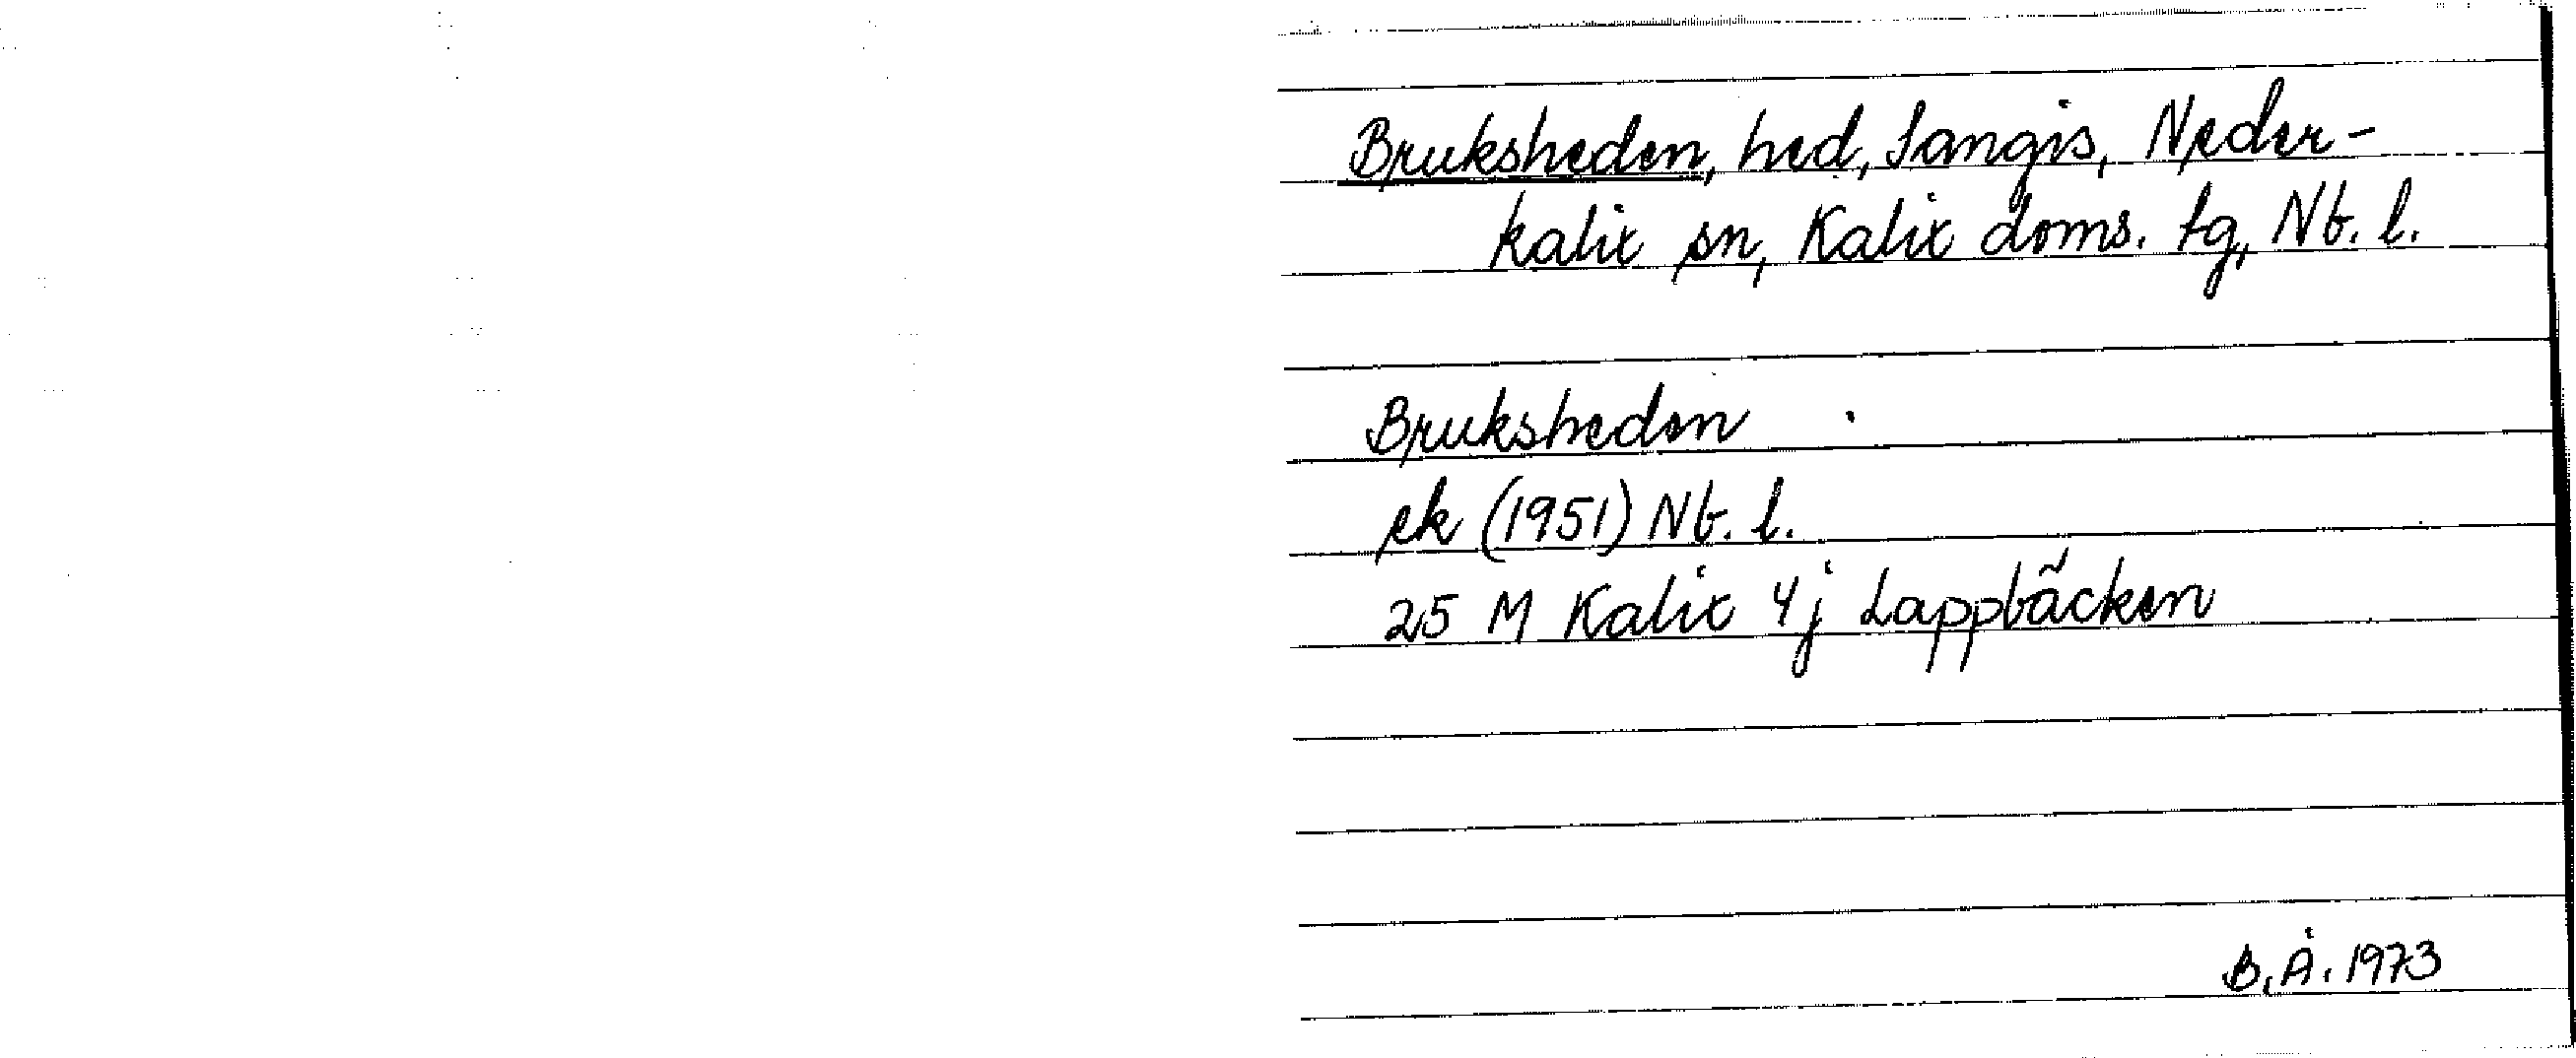 Bruksheden, hed, Sangis, Neder-
kalix sn, Kalix doms. tg, Nb. l.
Bruksheden
ek (1951) Nb. l.
25 M Kalix 4j Lappbäcken
B.Å. 1973